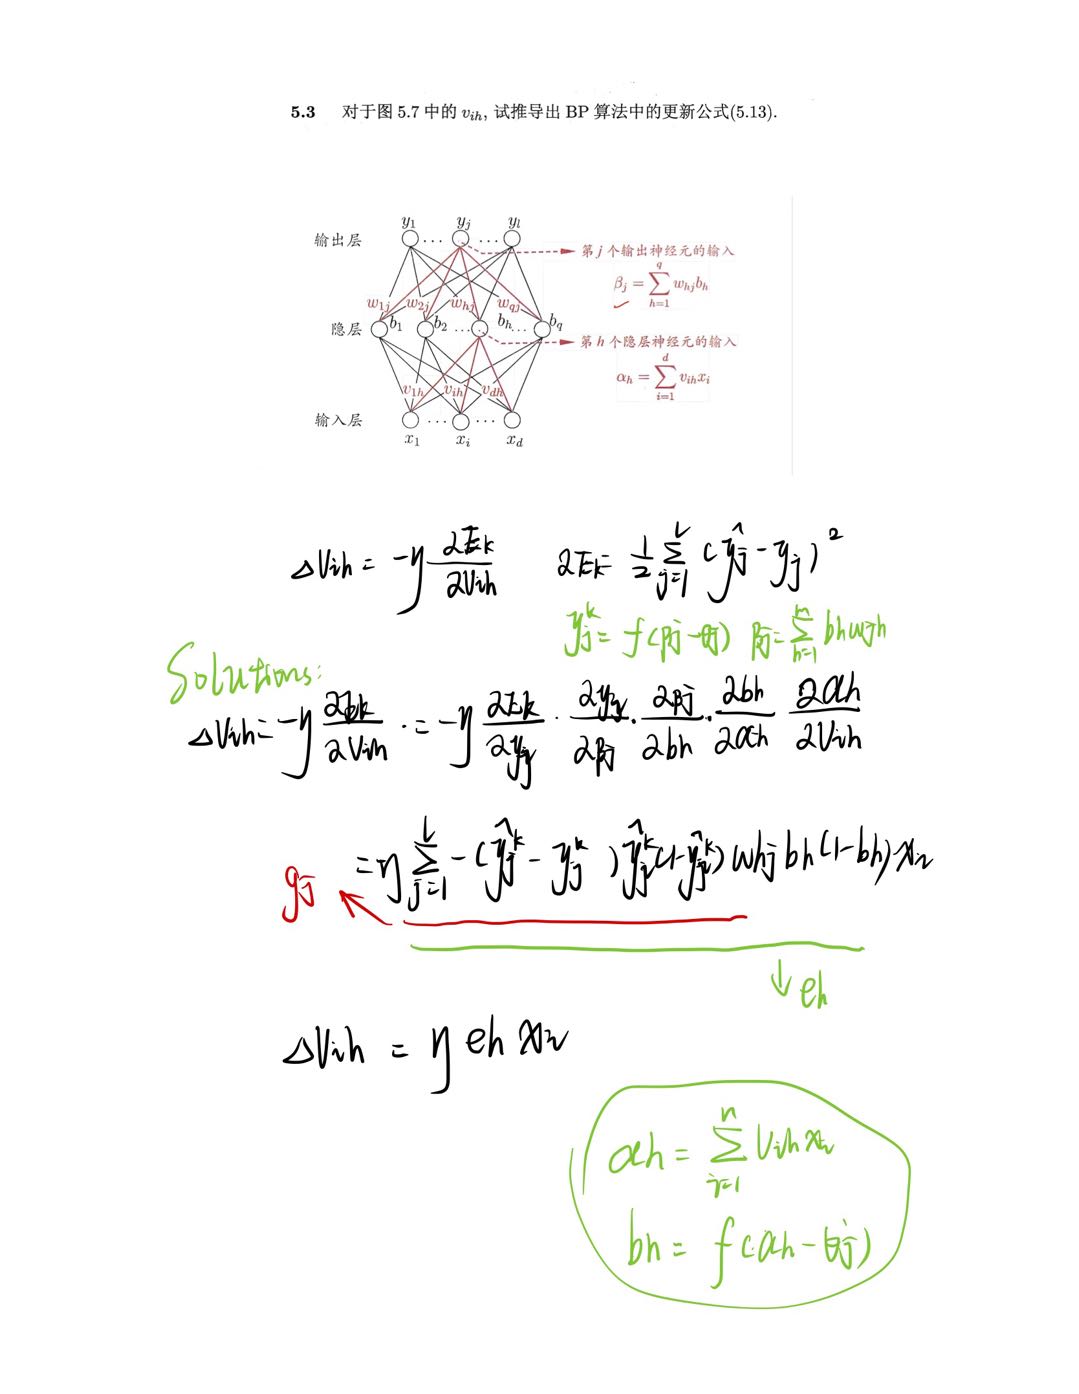 5.3 对于图 5.7 中的 vᵢₕ, 试推导出 BP 算法中的更新公式(5.13).
y₁ yⱼ yₗ
输出层 ··· ···
第 j 个输出神经元的输入
βⱼ = Σ_{h=1}^{q} wₕⱼbₕ
w₁ⱼ w₂ⱼ wₕⱼ w_qⱼ
隐层 b₁ b₂ ... bₕ... b_q
第 h 个隐层神经元的输入
αₕ = Σ_{i=1}^{d} vᵢₕxᵢ
v₁ₕ vᵢₕ v_dₕ
输入层 ··· ···
x₁ xᵢ x_d
△Vih = -η ∂Ek/∂Vih ∂Ek= 1/2 Σ_{j=1}^{L} (ŷj - yj)²
yj^k = f(βj - θj) βj = Σ_{h=1}^{n} bh wjh
Solutions:
△Vih = -η ∂Ek/∂Vih · = -η ∂Ek/∂yj · ∂yj/∂βj · ∂βj/∂bh · ∂bh/∂αh ∂αh/∂Vih
= η Σ_{j=1}^{L} -(ŷj^k - yj^k) ŷj^k(1-ŷj^k) whj bh(1-bh) xi
gj
eh
△Vih = η eh xi
αh = Σ_{i=1}^{n} Vih xi
bh = f(αh - θj)